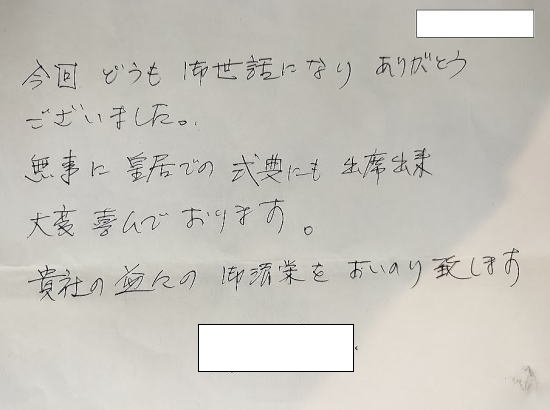 今回 どうも 御世話になり ありがとう
ございました。
無事に 皇居での 式典にも 出席出来
大変 喜んで おります。
貴社の 益々の 御清栄を おいのり致します